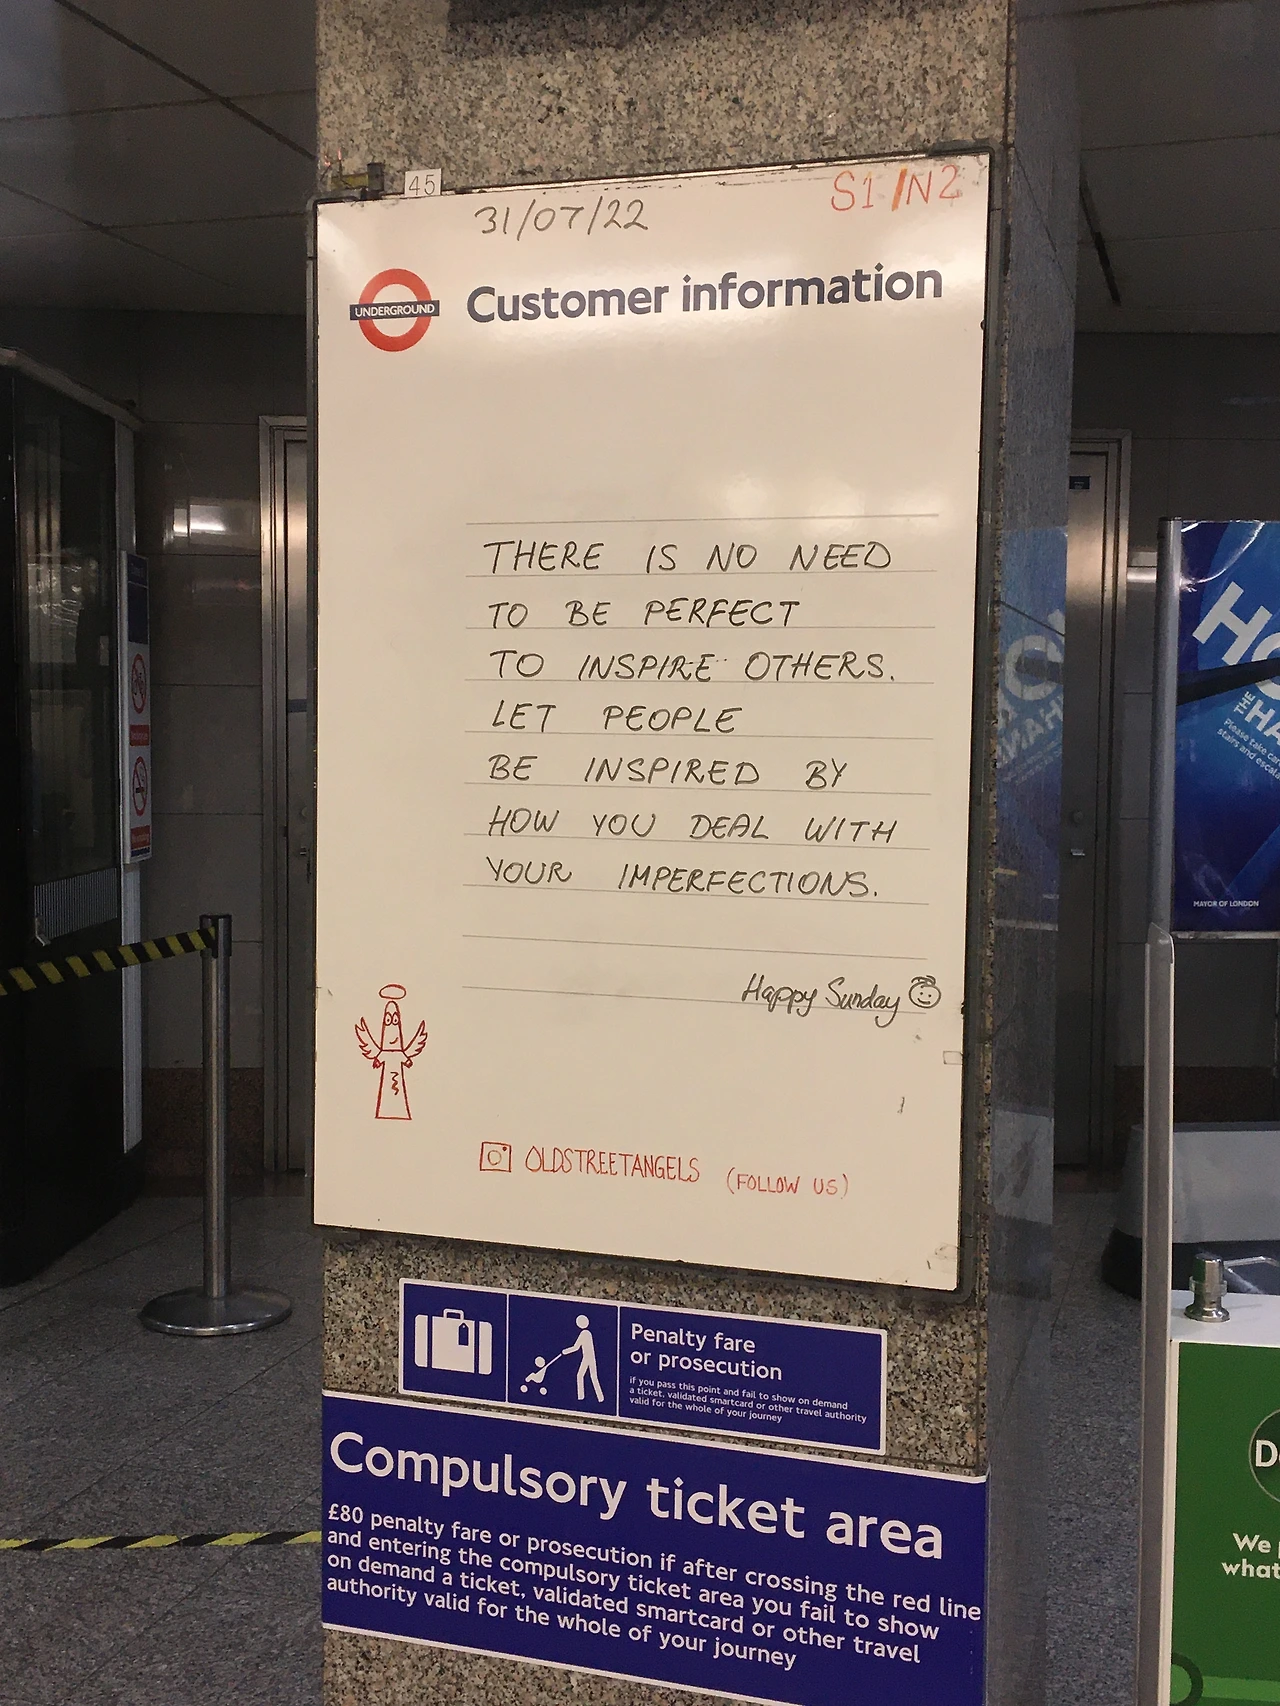 45
31/07/22
S1/N2
UNDERGROUND
Customer information
THERE IS NO NEED
TO BE PERFECT
TO INSPIRE OTHERS.
LET PEOPLE
BE INSPIRED BY
HOW YOU DEAL WITH
YOUR IMPERFECTIONS.
Happy Sunday
OLDSTREETANGELS (FOLLOW US)
Penalty fare
or prosecution
if you pass this point and fail to show on demand
a ticket, validated smartcard or other travel authority
valid for the whole of your journey
Compulsory ticket area
£80 penalty fare or prosecution if after crossing the red line
and entering the compulsory ticket area you fail to show
on demand a ticket, validated smartcard or other travel
authority valid for the whole of your journey
THE
Please take
stairs and
MAYOR OF LONDON
We
what